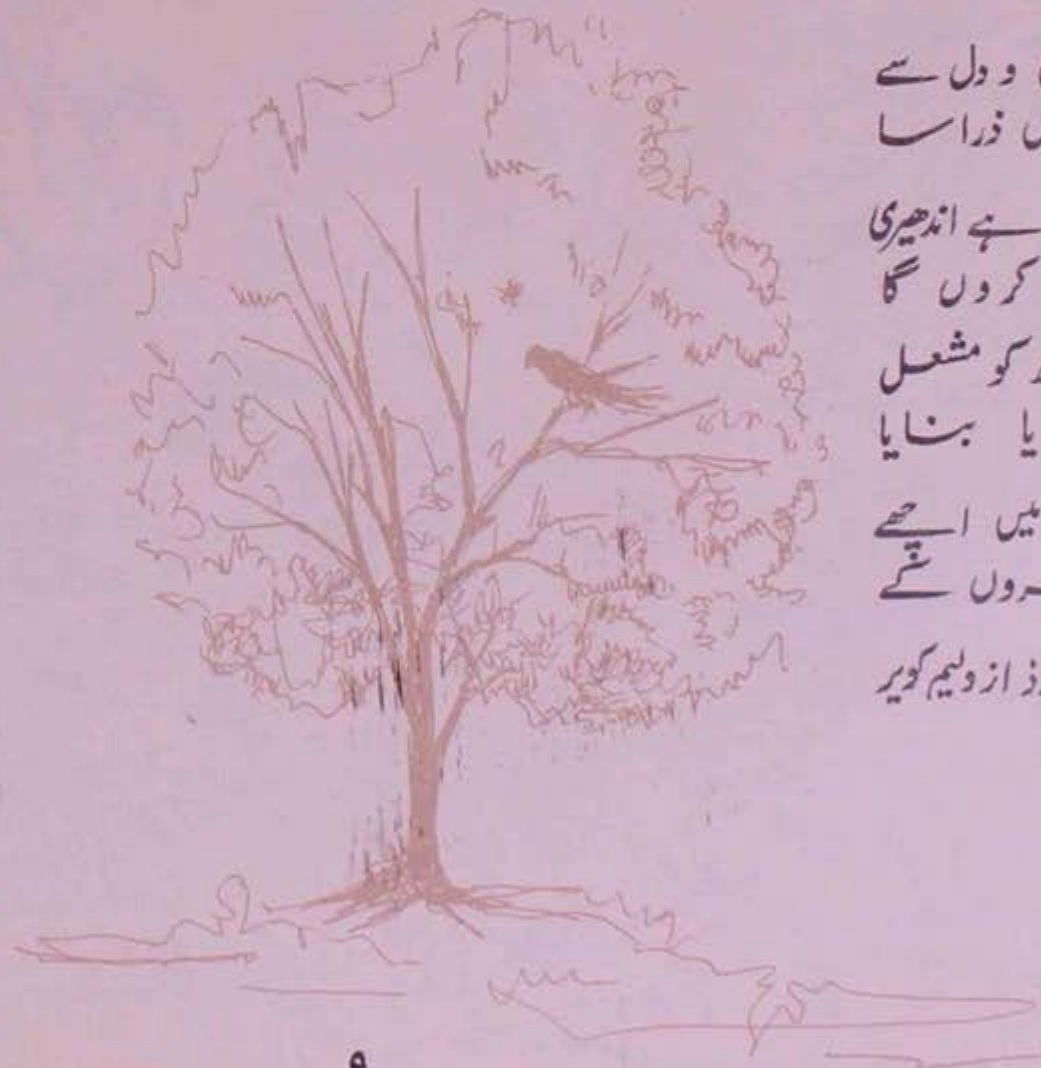 و دل سے
ذرا سا
ہے اندھیری
کروں گا
کو مشعل
بنایا
میں اچھے
کے
از ولیم کوپر
۹